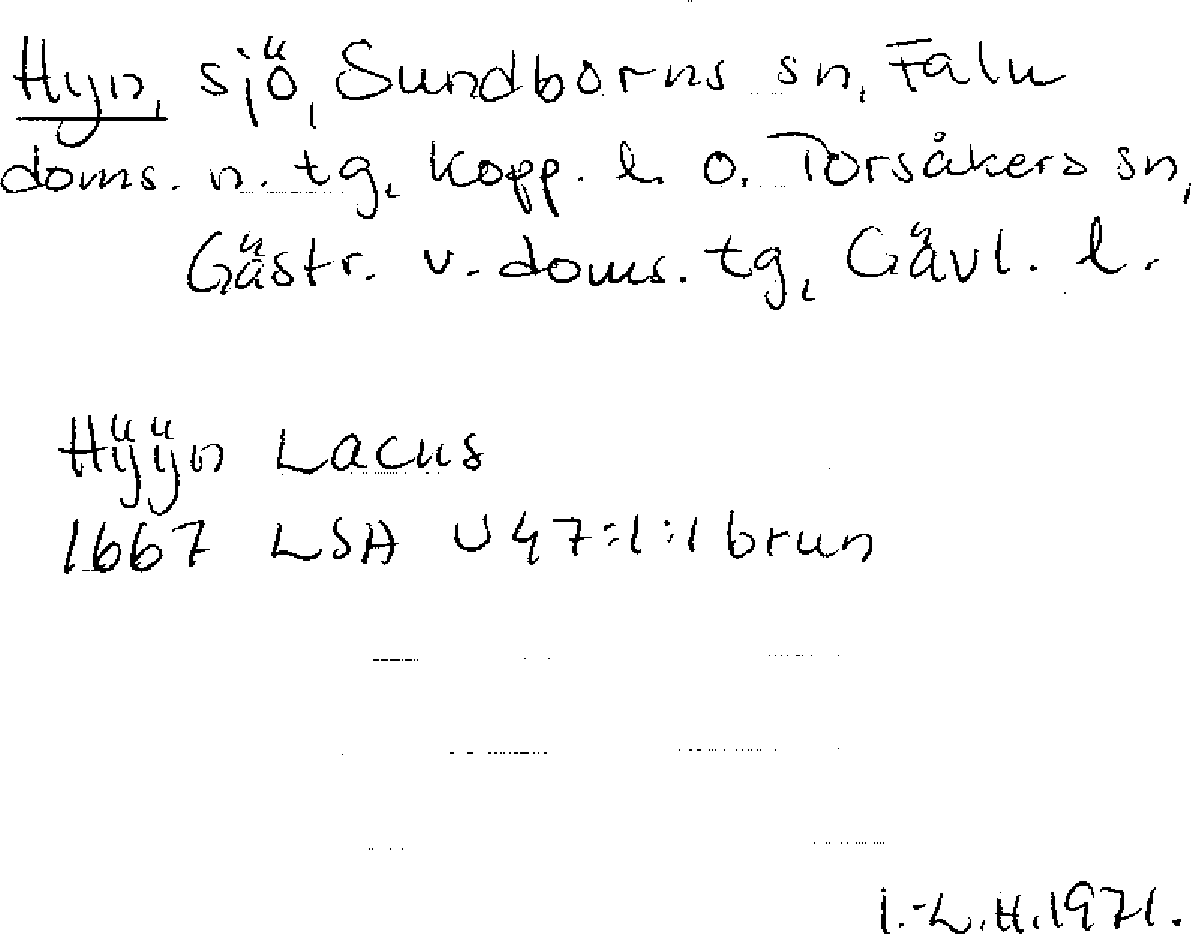 Hyn, sjö, Sundborns sn, Falu
doms. n. tg, Kopp. l. o. Torsåkers sn,
Gästr. v. doms. tg, Gävl. l.
Hÿÿn Lacus
1667 LSA U47:1:1 brun
I.-L.H.1971.